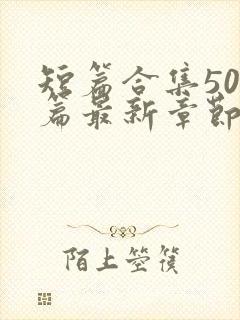 短篇合集50
篇最新章节
陌上箜篌